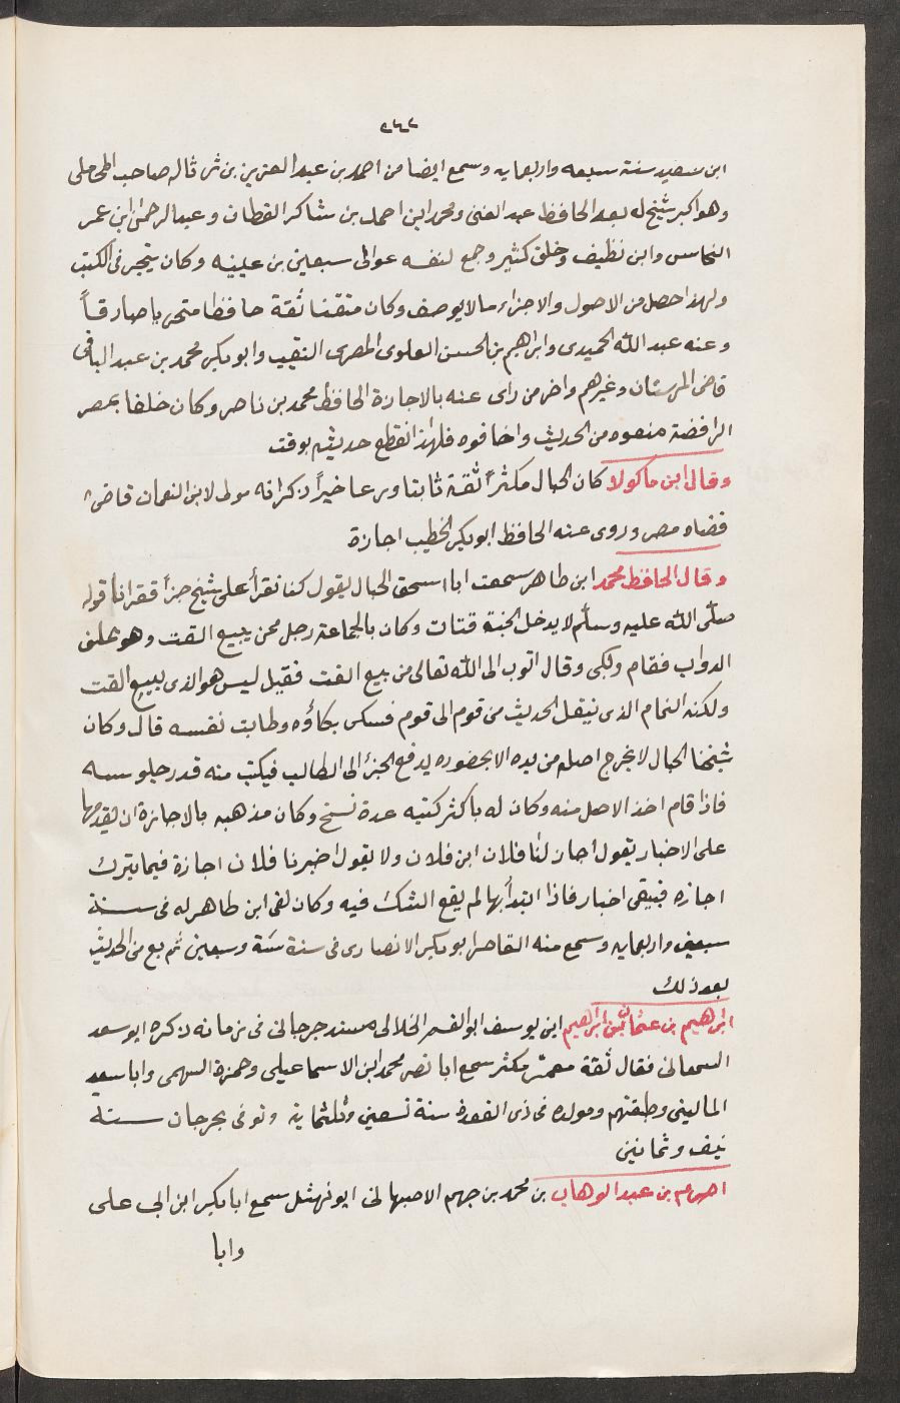 ٥٦٢
ابن سعيد سنة سبعه واربعمايه وسمع ايضا من احمد بن عبد العزيز بن ثرثال صاحب المحاملي
وهو اكبر شيخ له بعد الحافظ عبد الغنى ومحمد ابن احمد بن شاكر القطان وعبد الرحمن ابن عمر
النحاس وابن نظيف وخلق كثير وجمع لنفسه عوالى سبعين بن عيينه وكان يتجر فى الكتب
ولهذا حصل من الاصول والاجزاء مالايوصف وكان متقنا ثقة حافظا متحريا صادقاً
وعنه عبد الله الحميدى وابراهيم بن الحسن العلوى المصرى النقيب وابو بكر محمد بن عبد الباقى
قاضى المرستان وغيرهم واخر من راى عنه بالاجازة الحافظ محمد بن ناصر وكان خلفا بمصر
الرافضة منعوه من الحديث واخافوه فلهذا انقطع حديثه بوقت
وقال ابن ماكولا كان الحبال مكثراً ثقة ثابتا ورعا خيراً ذكر انه مولى لابن النعمان قاضى
قضاه مصر وروى عنه الحافظ ابو بكر الخطيب اجازة
وقال الحافظ محمد ابن طاهر سمعت ابا اسحق الحبال يقول كنا نقرأ على شيخ جزأ فقرانا قوله
صلى الله عليه وسلم لا يدخل الجنة قتات وكان بالجماعة رجل ممن يبيع القت وهو علف
الدواب فقام وبكى وقال اتوب الى الله تعالى من بيع القت فقيل ليس هو الذى يبيع القت
ولكنه النمام الذى ينقل الحديث من قوم الى قوم فسكن بكاؤه وطابت نفسه قال وكان
شيخنا الحبال لا يخرج اصله من يده الا بحضوره يدفع الجزء الى الطالب فيكتب منه قدر جلوسه
فاذا قام اخذ الاصل منه وكان له باكثر كتبه عدة نسخ وكان مذهبه بالاجازة ان يقدمها
على الاخبار يقول اجاز لنا فلان ابن فلان ولا يقول اخبرنا فلان اجازة فيما يترك
اجازه فيبقى اخبار فاذا ابتدأ بها لم يقع الشك فيه وكان لقى ابن طاهر له فى سنة
سبعين واربعمايه وسمع منه القاصر ابو بكر الانصارى فى سنة ستة وسبعين ثم بع من الحديث
بعد ذلك
ابراهيم بن عثمان بن ابراهيم ابن يوسف ابو القسم الخلالى مسند جرجانى فى زمانه ذكره ابو سعد
السمعانى فقال ثقة معمّر مكثر سمع ابا نصر محمد ابن الاسماعيلى وحمزة السهمى وابا سعد
المالينى وطبقتهم ومولده فى ذى القعدة سنة تسعين وثلثماية وتوفى بجرجان سنة
نيف وثمانين
بن عبد الوهاب بن محمد بن جهم الاصبهانى ابو نهشل سمع ابا بكر ابن ابى على
وابا